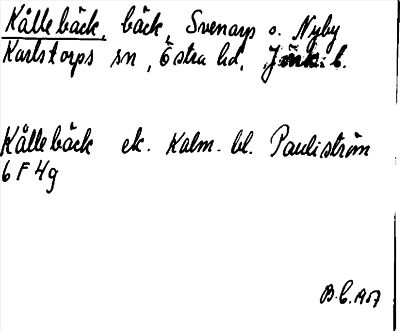 Kållebäck, bäck, Svenarp o. Nyby
Karlstorps sn, Östra hd, Jönk. l.
Kållebäck ek. Kalm. bl. Pauliström
6 F 4g